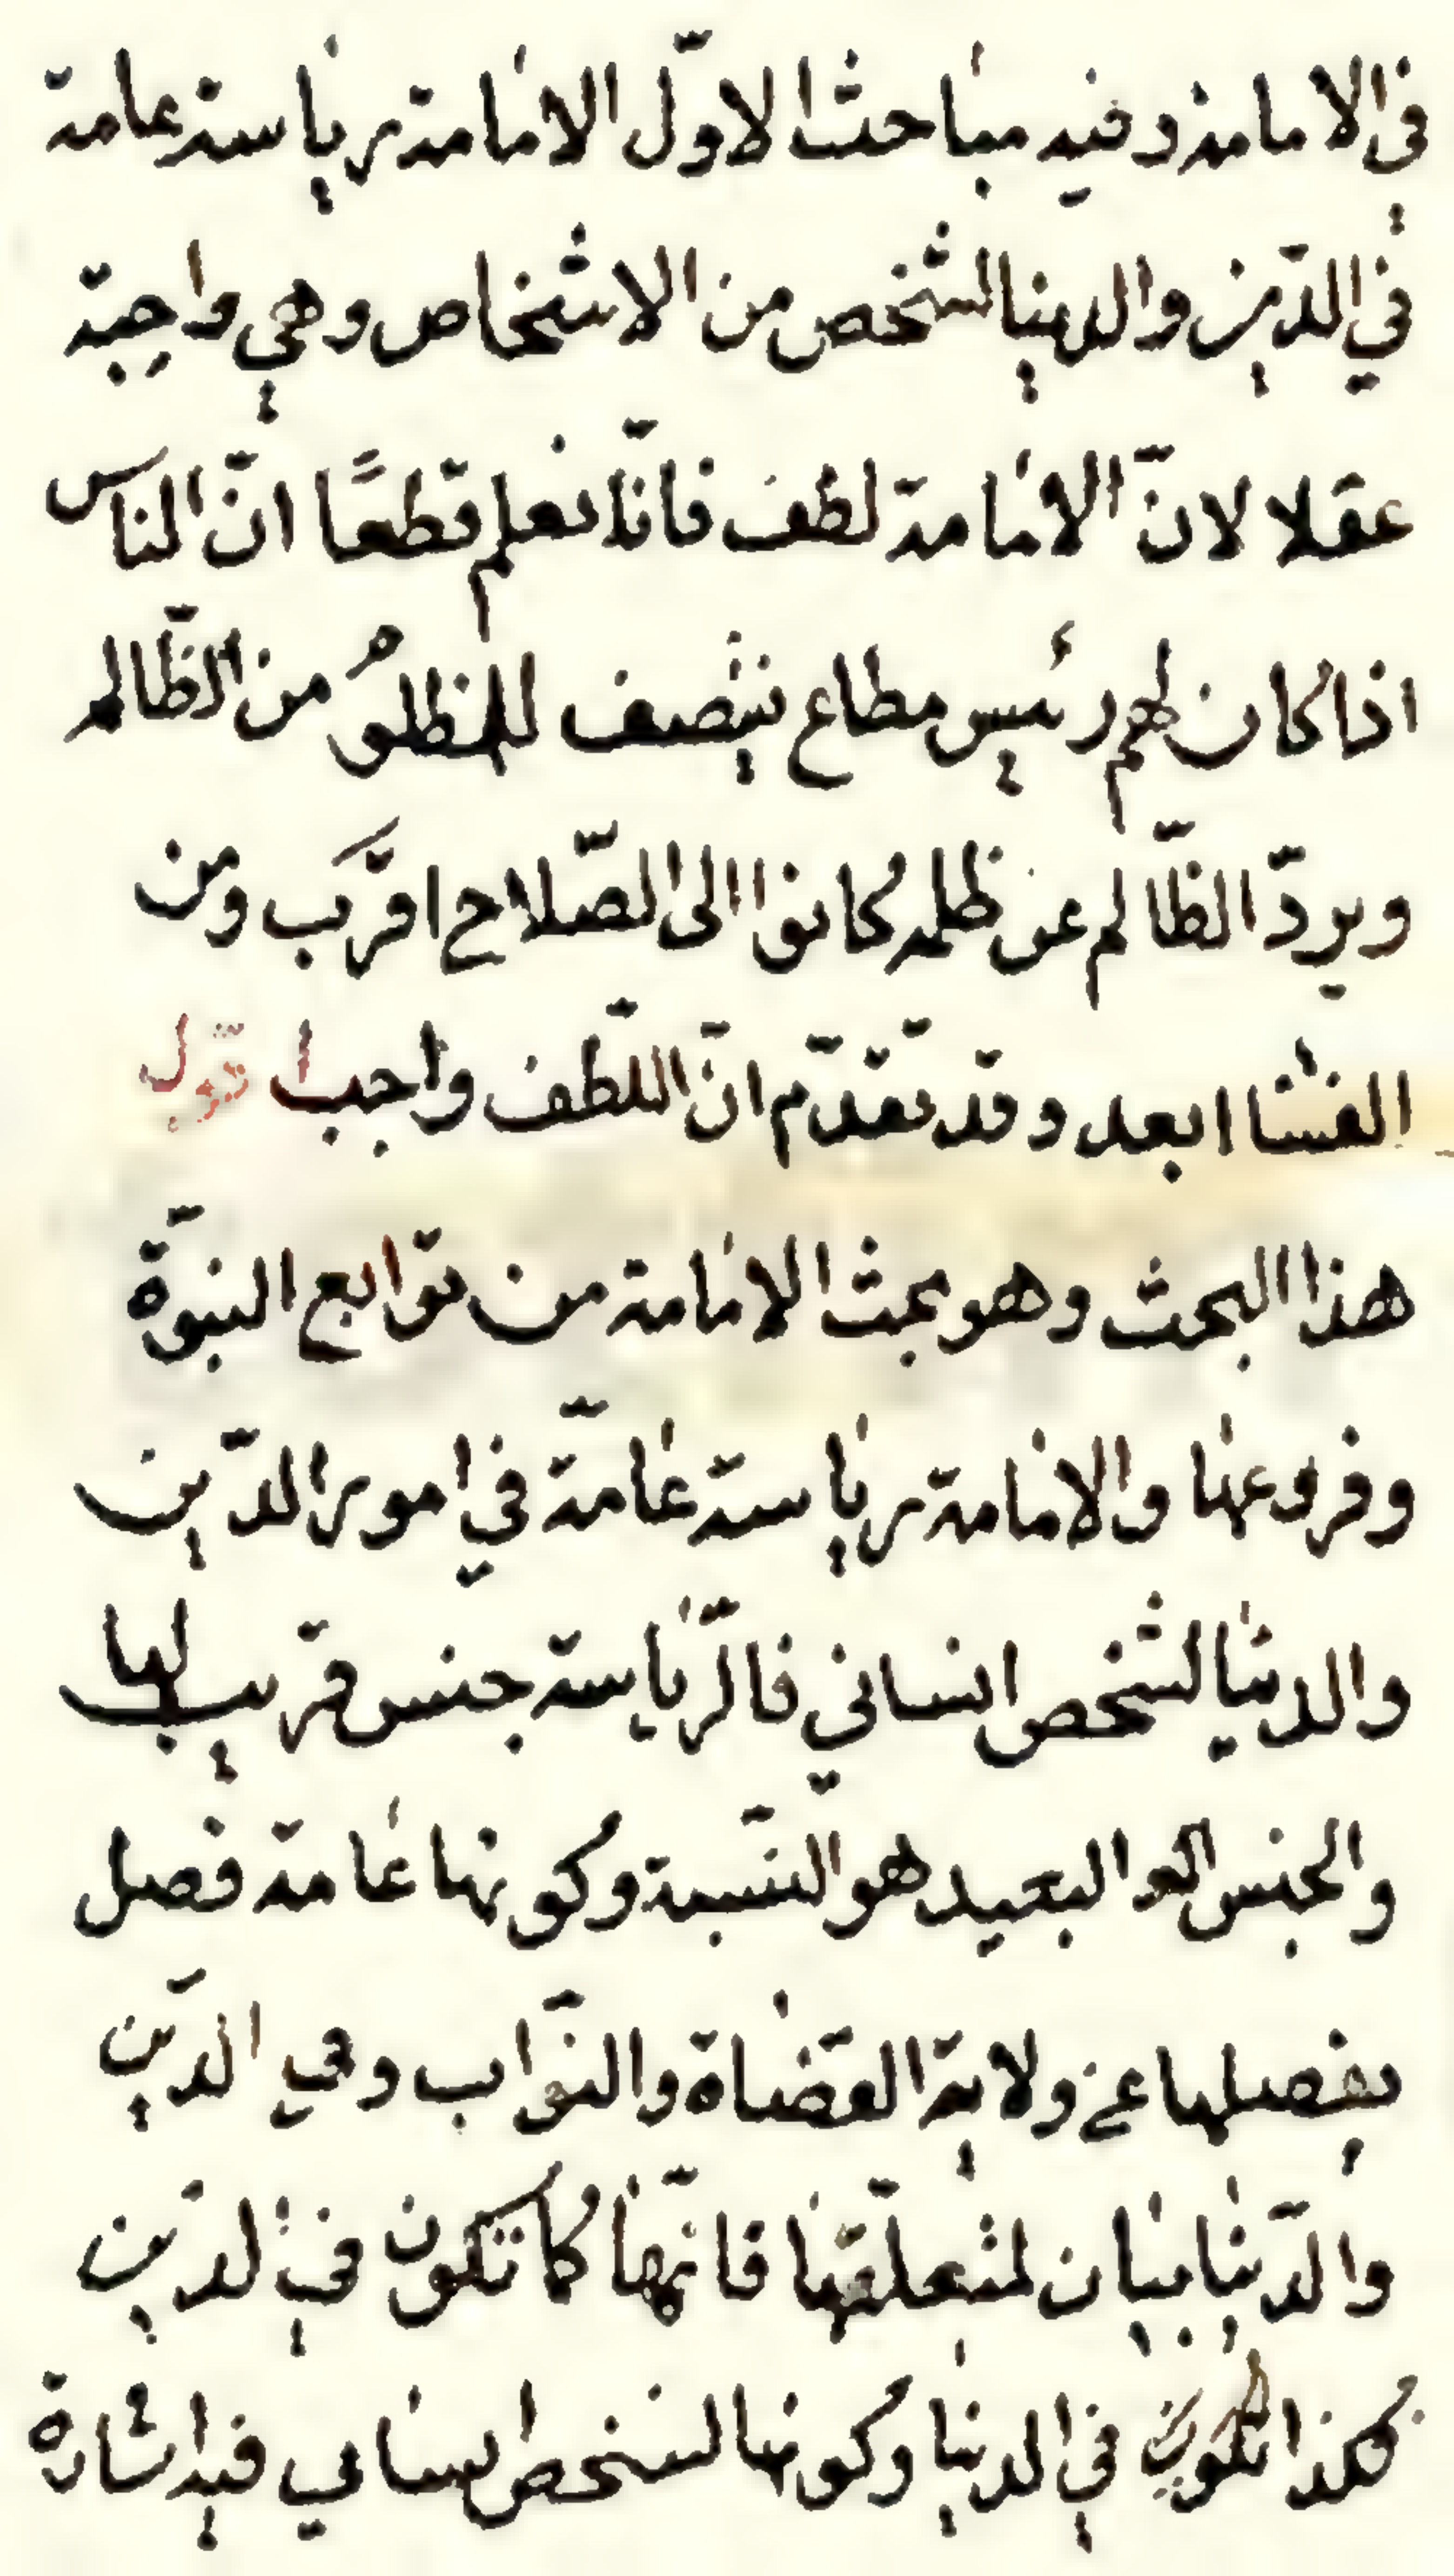 في الامامة وفيه مباحث الاوّل الامامة رياسة عامة
في الدّين والدنيا لشخص من الاشخاص وهي واجبة
عقلا لانّ الامامة لطف فانّا نعلم قطعًا انّ الناس
اذا كان لهم رئيس مطاع ينتصف للمظلوم من الظّالم
ويردّ الظّالم عن ظلمه كانوا الى الصّلاح اقرَب ومن
الفسا ابعد وقد تقدّم انّ اللّطف واجب اقول
هذا البحث وهو بحث الامامة من توابع النبوّة
وفروعها والامامة رياسة عامّة في امور الدّين
والدنيا لشخص انساني فالرّياسة جنس قريب لها
والجنس البعيد هو النّسبة وكونها عامة فصل
يفصلها عن ولاية القضاة والنوّاب وفي الدّين
والدّنيا بيان لمتعلّقها فانّها كما تكون في الدّين
كذا تكون في الدنيا وكونها لشخص انساني فيه اشارة